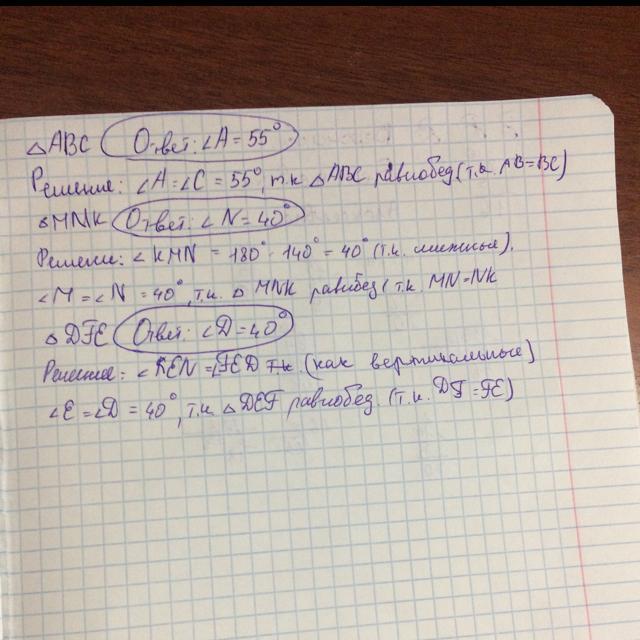 △ABC Ответ: ∠A = 55°
Решение: ∠A = ∠C = 55°, т.к △ABC равнобед (т.к AB=BC)
△MNK Ответ: ∠N = 40°
Решение: ∠KMN = 180° - 140° = 40° (т.к. смежные).
∠M = ∠N = 40°, т.к. △ MNK равнобед (т.к MN=NK
△DFE Ответ: ∠D = 40°
Решение: ∠KEN = FED т.к (как вертикальные)
∠E = ∠D = 40°, т.к △DEF равнобед. (т.к. DF = FE)